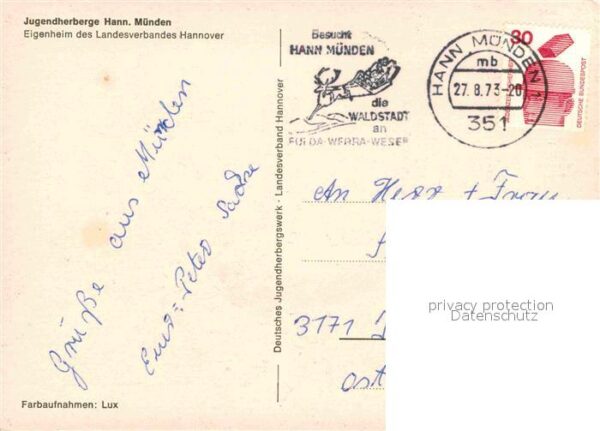 Jugendherberge Hann. Münden
Eigenheim des Landesverbandes Hannover
Grüße aus Münden
Peter
Farbaufnahmen: Lux
Deutsches Jugendherbergswerk - Landesverband Hannover
Besucht
HANN MÜNDEN
die
WALDSTADT
an
FULDA-WERRA-WESER
HANN MÜNDEN 1
mb
27. 8. 73-20
351
30
DEUTSCHE BUNDESPOST
An Herr + Frau
3171
privacy protection
Datenschutz